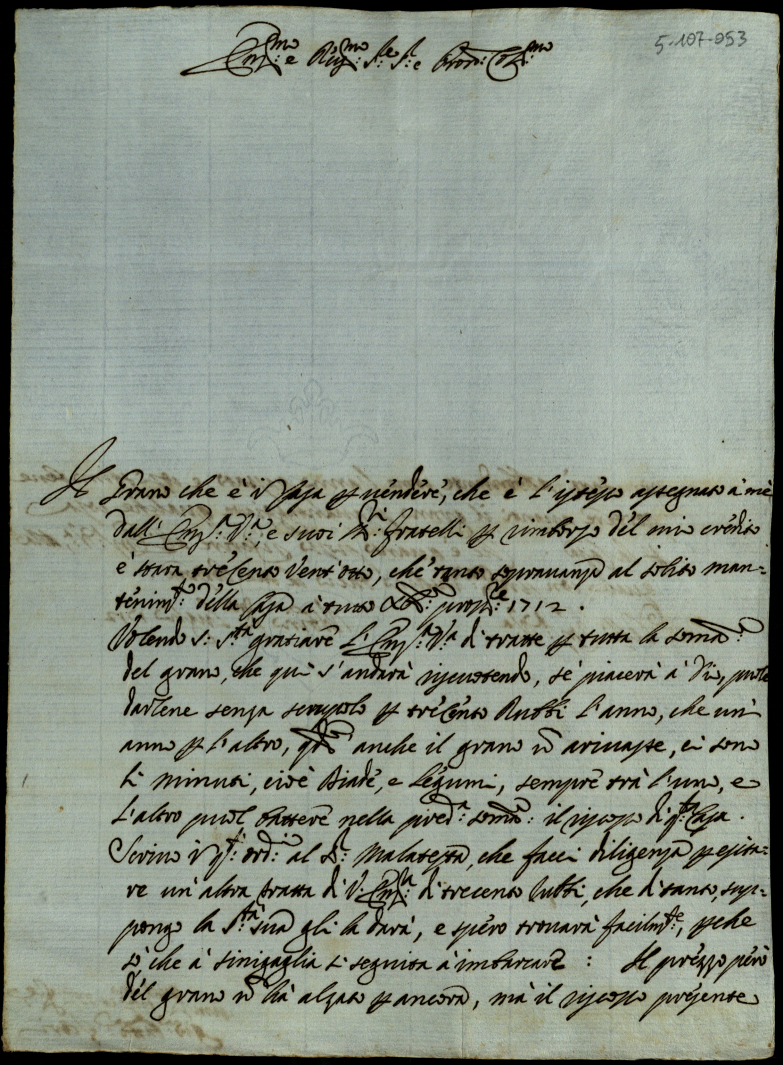 5-107-053
Em.mo e Rev.mo Sig.re Sig.re e Pron. Col.mo
Il Grano che è i Casa p vendere, che è l'istesso assegnato à me
dall' Em.za V.a, e suoi SS.ri fratelli p rimborso del mio credito
è stara trecento vent'otto, che tanto sopravanza al solito man-
tenim.to della Casa à tutto pross.e 1712.
Volendo S. S.tà gratiare l'Em.za V.a di tratte p tutta la somma
del grano, che qui s'andarà riscuotendo, se piacerà à Dio, puole
darlene senza scrupolo p trecento Rubbi l'anno, che un'
anno p l'altro, q.do anche il grano n arivasse, ci sono
li minuti, cioè Biade, e legumi, sempre trà l'uno, e
l'altro puol battere nella pred.a somma il riscosso di q.ta Casa.
Scrivo i q.to ord.io al S.r Malatesta, che facci diligenza p esita-
re un'altra tratta di V. Em.za di trecento rubbi, che di tanto, sup-
pongo la S.tà sua gli la darà, e spero trovarà facilm.te, pche
sò che à Sinigaglia si seguita à imbarcare: Il prezzo però
del grano n hà alzato p ancora, mà il riscosso presente